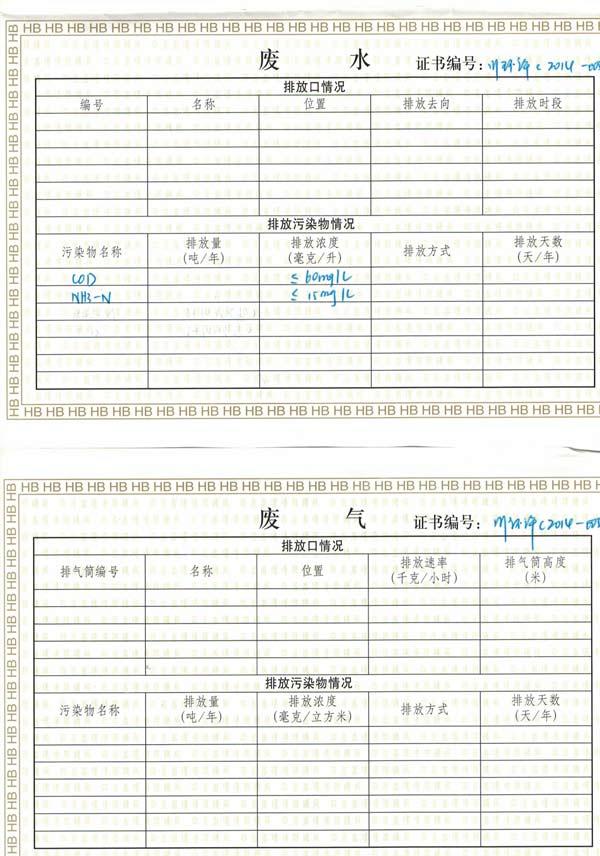 HB HB HB HB HB HB HB HB HB HB HB HB HB HB HB HB HB HB HB
废 水 证书编号:
排放口情况
编号 名称 位置 排放去向 排放时段
排放污染物情况
污染物名称 排放量(吨/年) 排放浓度(毫克/升) 排放方式 排放天数(天/年)
COD ≤60mg/L
NH3-N ≤15mg/L
HB HB HB HB HB HB HB HB HB HB HB HB HB HB HB HB HB HB HB
HB HB HB HB HB HB HB HB HB HB HB HB HB HB HB HB HB HB HB
废 气 证书编号:
排放口情况
排气筒编号 名称 位置 排放速率(千克/小时) 排气筒高度(米)
排放污染物情况
污染物名称 排放量(吨/年) 排放浓度(毫克/立方米) 排放方式 排放天数(天/年)